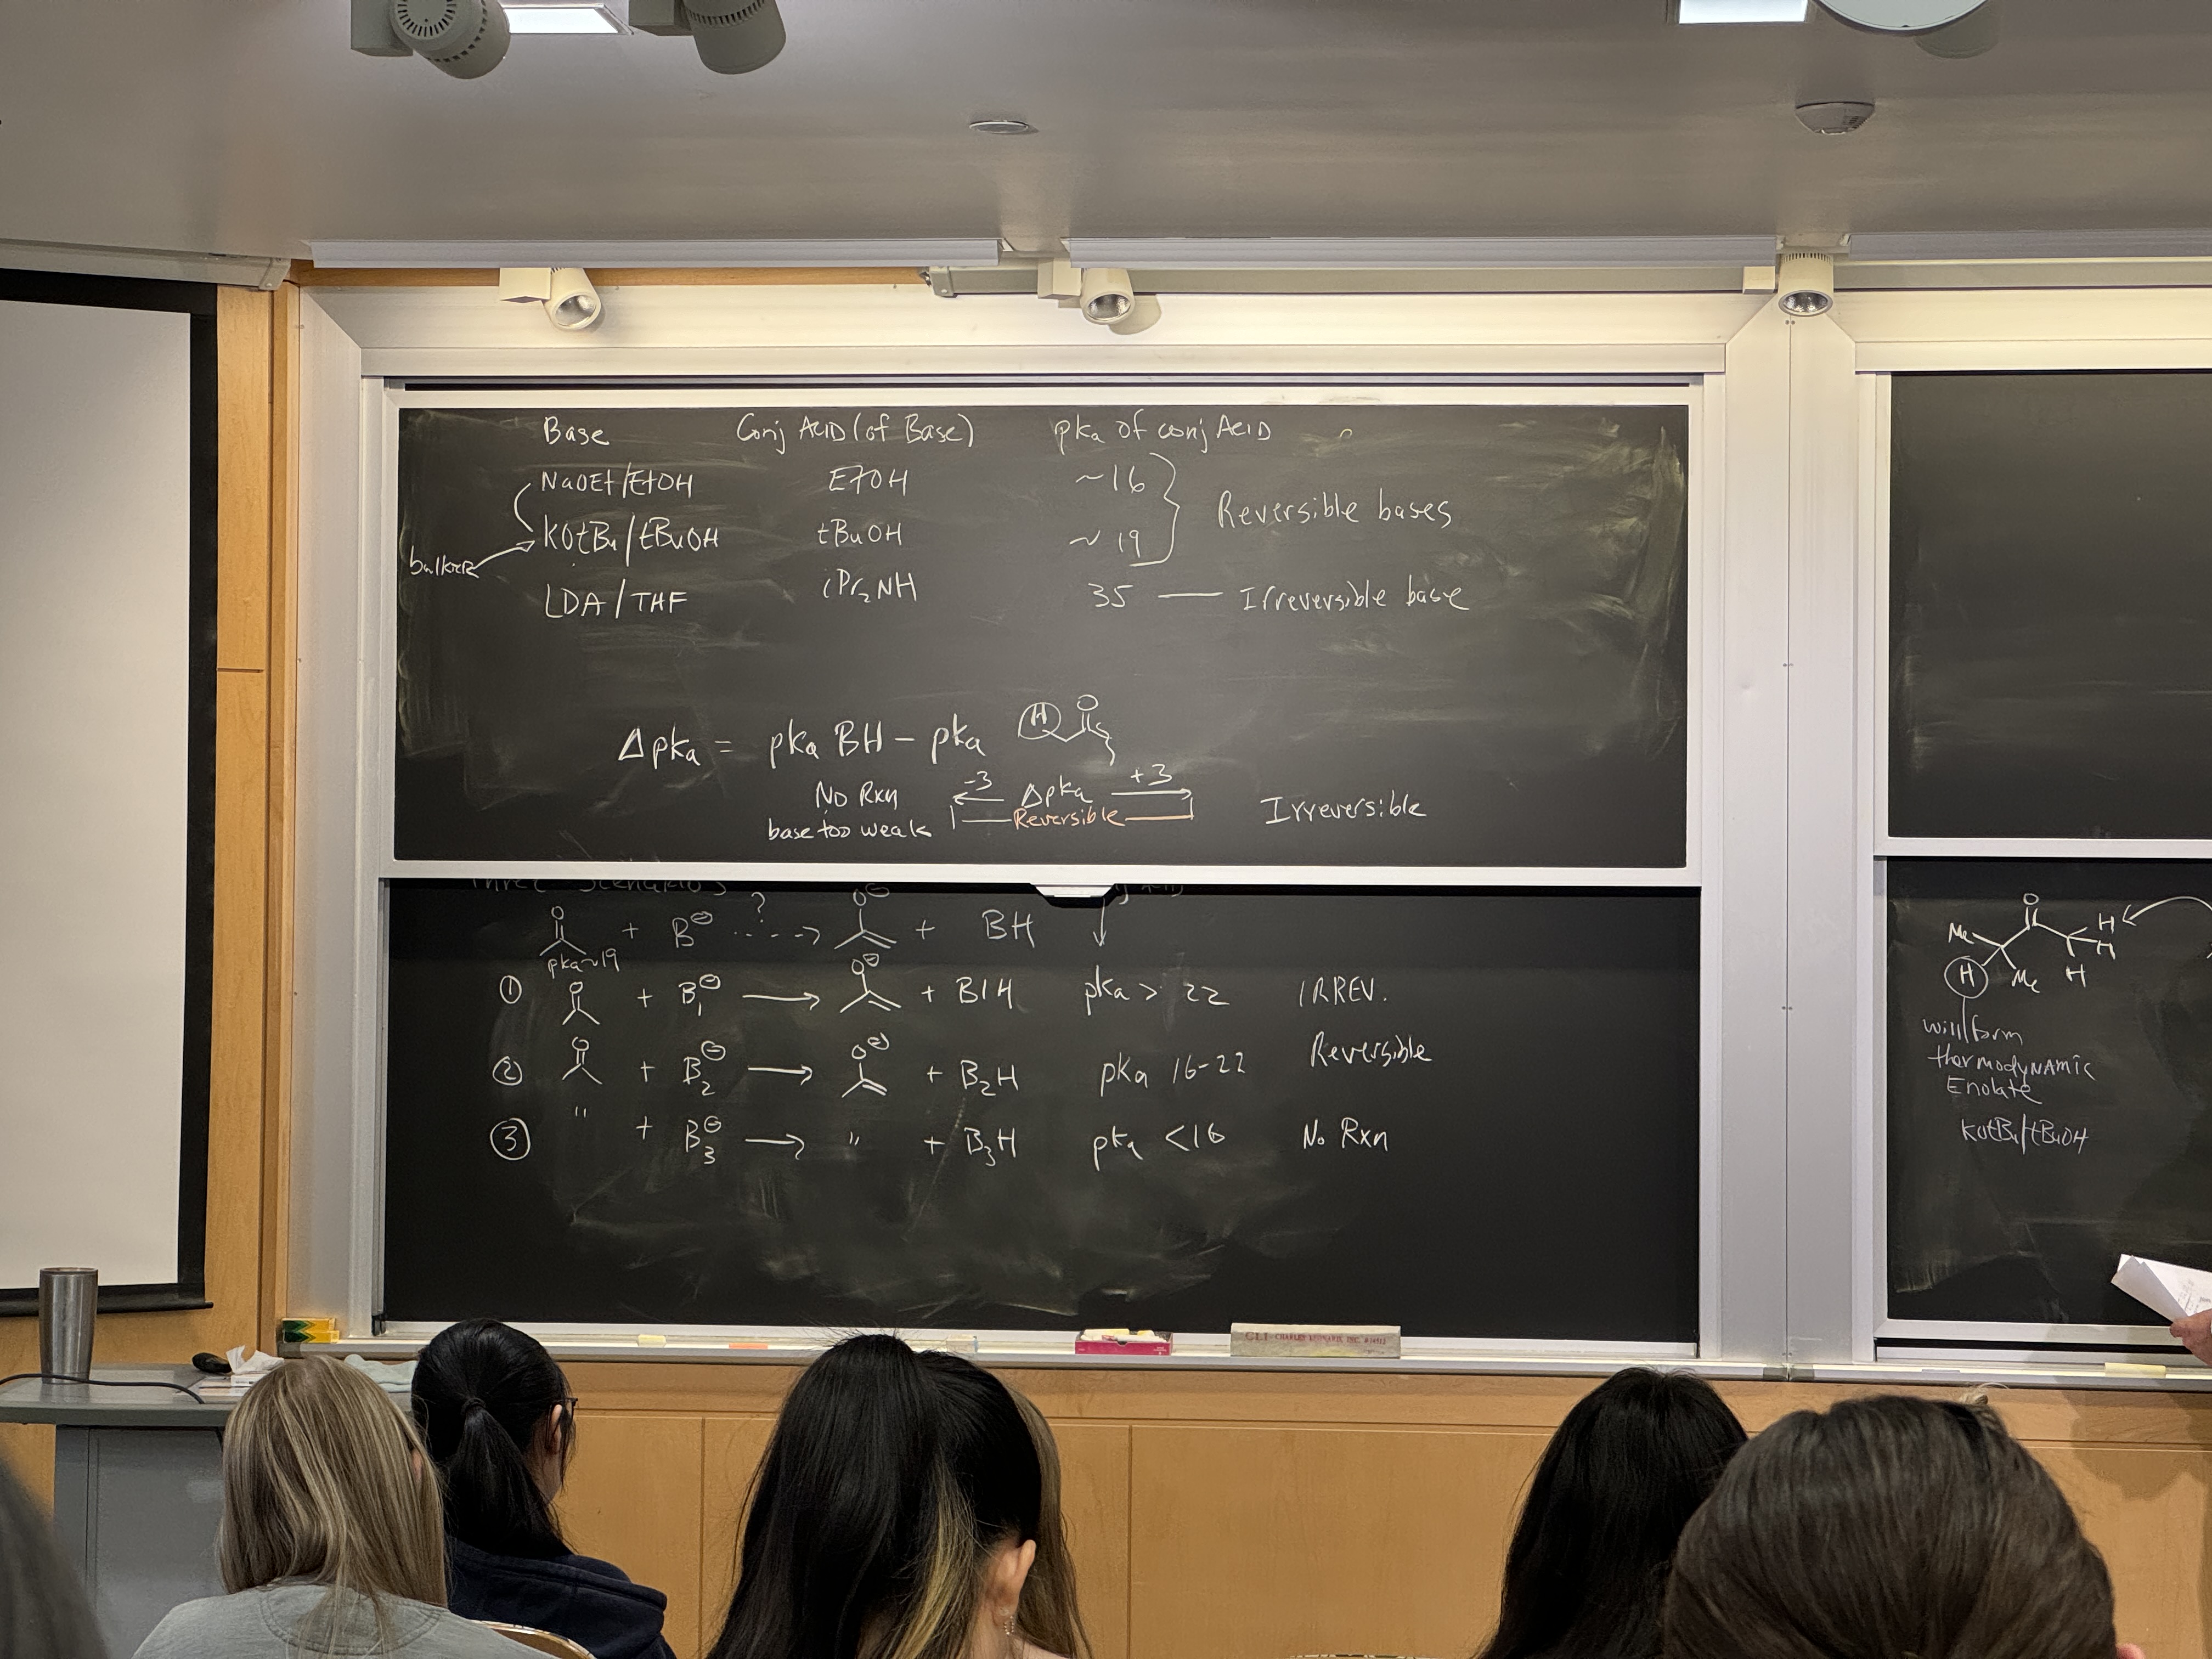 Base Conj Acid (of Base) pka of conj Acid
NaOEt/EtOH EtOH ~16
Reversible bases
KOtBu/tBuOH tBuOH ~19
bulkier
LDA/THF iPr₂NH 35 — Irreversible base
Δpka = pka BH - pka H O
No Rxn -3 Δpka +3
base too weak Reversible Irreversible
Three Scenarios
O + B⊖ ? O⊖ + BH
pka~19
① O + B₁⊖ → O⊖ + B1H pka > 22 IRREV.
② O + B₂⊖ → O⊖ + B₂H pka 16-22 Reversible
③ " + B₃⊖ → " + B₃H pka <16 No Rxn
O
Me H
H
H Me H
will form
thermodynamic
Enolate
KOtBu/tBuOH